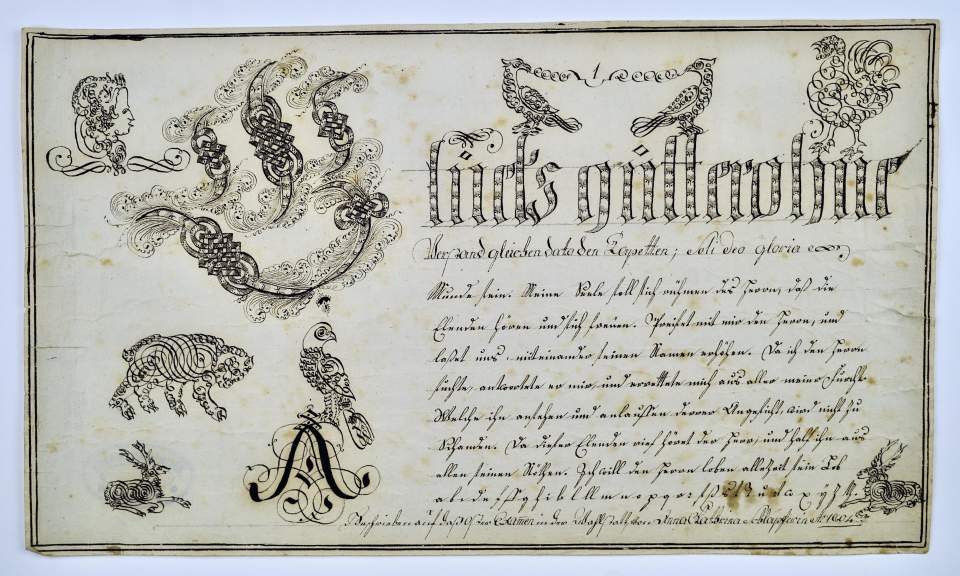 1,
Glücks gütter ohne
Verstand gleichen dato den Tapetten; Soli Deo Gloria
Munde sein. Meine Seele soll sich rühmen des Herrn, daß die
Elenden hören und sich freuen. Preiset mit mir den Herrn, und
laßet uns miteinander seinen Namen erhöhen. Da ich den Herrn
suchte, antwortete er mir, und errettete mich aus aller meiner Furcht.
Welche ihn ansehen und anlauffen derrer Angesicht, wird nicht zu
Schanden. Da dieser Elenden rief höret der Herr, und half ihn aus
allen seinen Nöthen. Ich will den Herrn loben allezeit sein Lob
A
Geschrieben auf daß Oster Examen in der von Anna Catharina Schläpferin A: 1804.